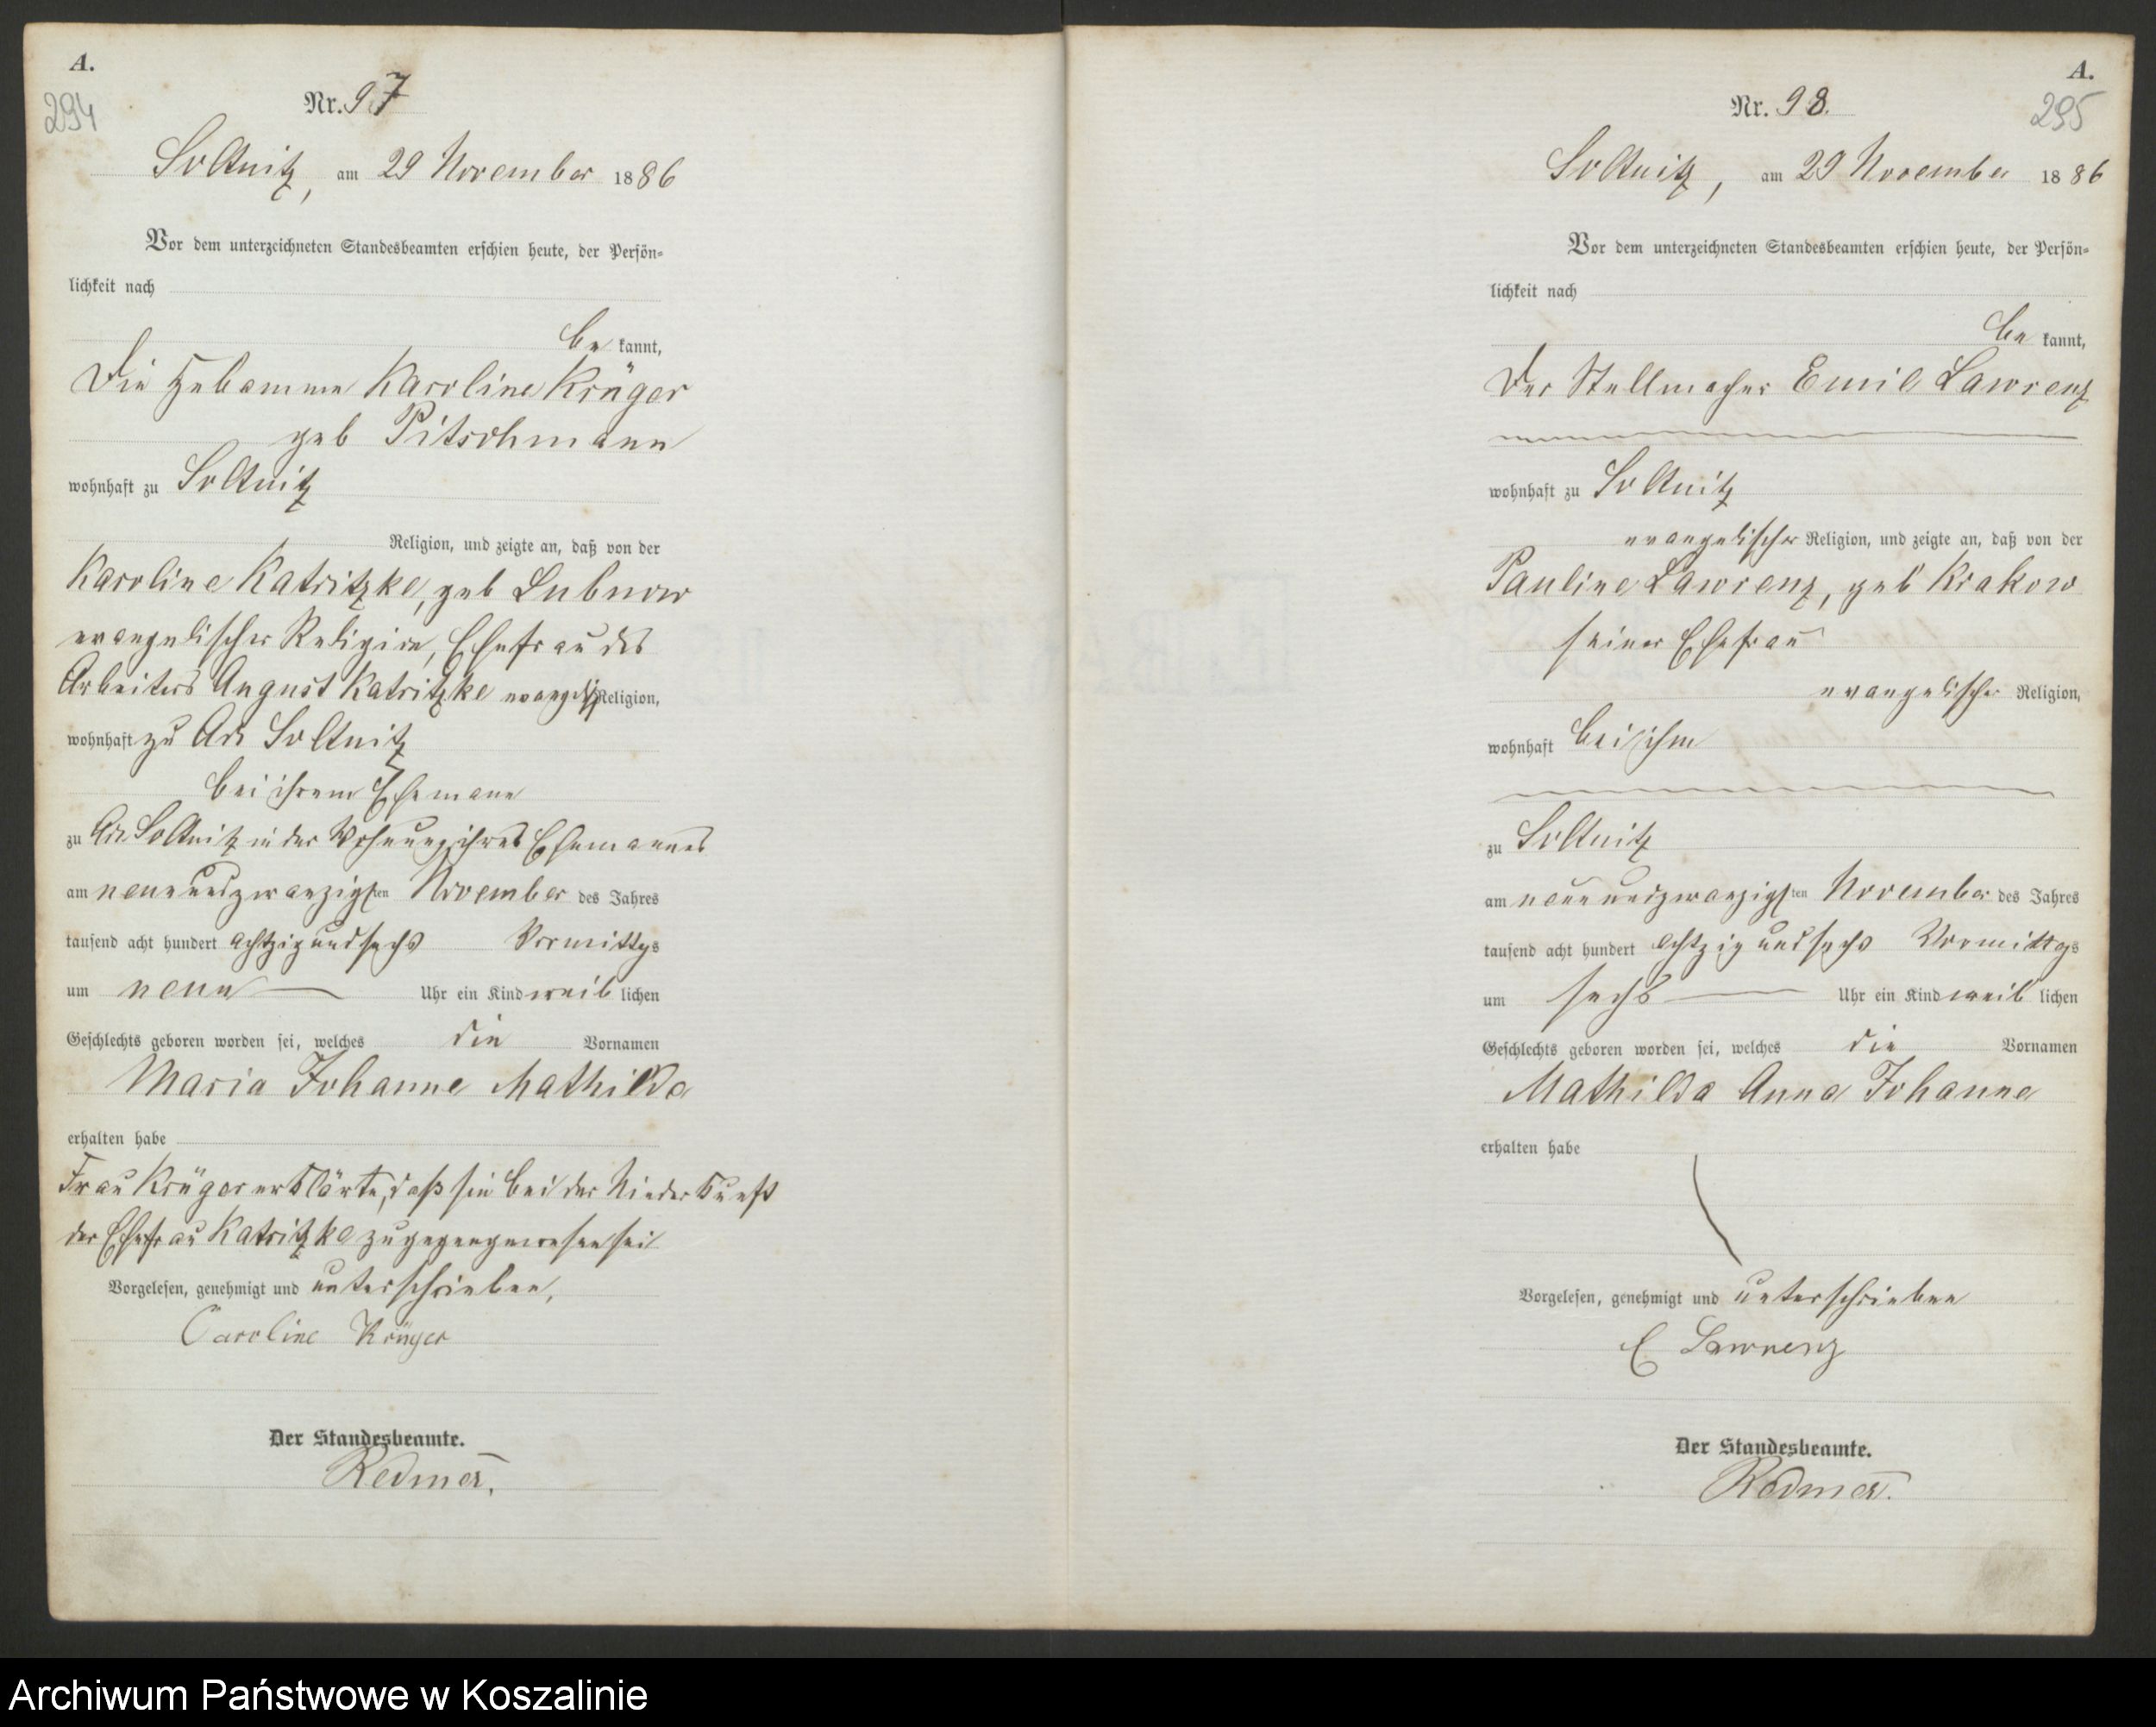 A.
294
Nr. 97
Soltnitz, am 29 November 1886
Vor dem unterzeichneten Standesbeamten erschien heute, der Persön-
lichkeit nach
be kannt,
Die Hebamme Karoline Krüger
geb Pitschmann
wohnhaft zu Soltnitz
Religion, und zeigte an, daß von der
Karoline Katritzke, geb Lubnow
evangelischer Religion, Ehefrau des
Arbeiters August Katritzke evangelisch Religion,
wohnhaft zu Soltnitz
bei ihrem Ehemann
zu Soltnitz in der Wohnung ihres Ehemannes
am neunundzwanzigsten November des Jahres
tausend acht hundert achtzig und sechs Vormittgs
um neun Uhr ein Kind weib lichen
Geschlechts geboren worden sei, welches die Vornamen
Maria Johanne Mathilde
erhalten habe
Frau Krüger erklärte, daß sie bei der Niederkunft
der Ehefrau Katritzke zugegengewesen sei
Vorgelesen, genehmigt und unterschrieben,
Caroline Krüger
Der Standesbeamte.
Redmer.
A.
295
Nr. 98.
Soltnitz, am 29 November 1886
Vor dem unterzeichneten Standesbeamten erschien heute, der Persön-
lichkeit nach
be kannt,
Der Stellmacher Emil Lawrenz
wohnhaft zu Soltnitz
evangelischer Religion, und zeigte an, daß von der
Pauline Lawrenz, geb Krakow
seiner Ehefrau
evangelischer Religion,
wohnhaft bei ihm
zu Soltnitz
am neunundzwanzigsten November des Jahres
tausend acht hundert achtzig und sechs Vormittgs
um sechs Uhr ein Kind weib lichen
Geschlechts geboren worden sei, welches die Vornamen
Mathilda Anna Johanne
erhalten habe
Vorgelesen, genehmigt und unterschrieben
E Lawrenz
Der Standesbeamte.
Redmer.
Archiwum Państwowe w Koszalinie